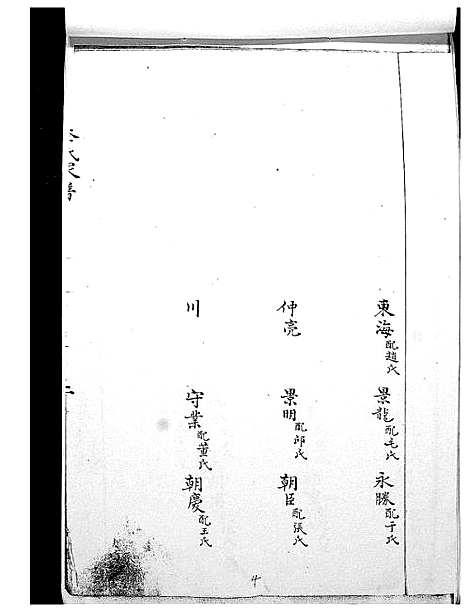 東海配趙氏 景龍配毛氏 永勝配于氏
仲亮 景明配邱氏 朝臣配張氏
川 守業配董氏 朝慶配王氏
氏家譜
二
4